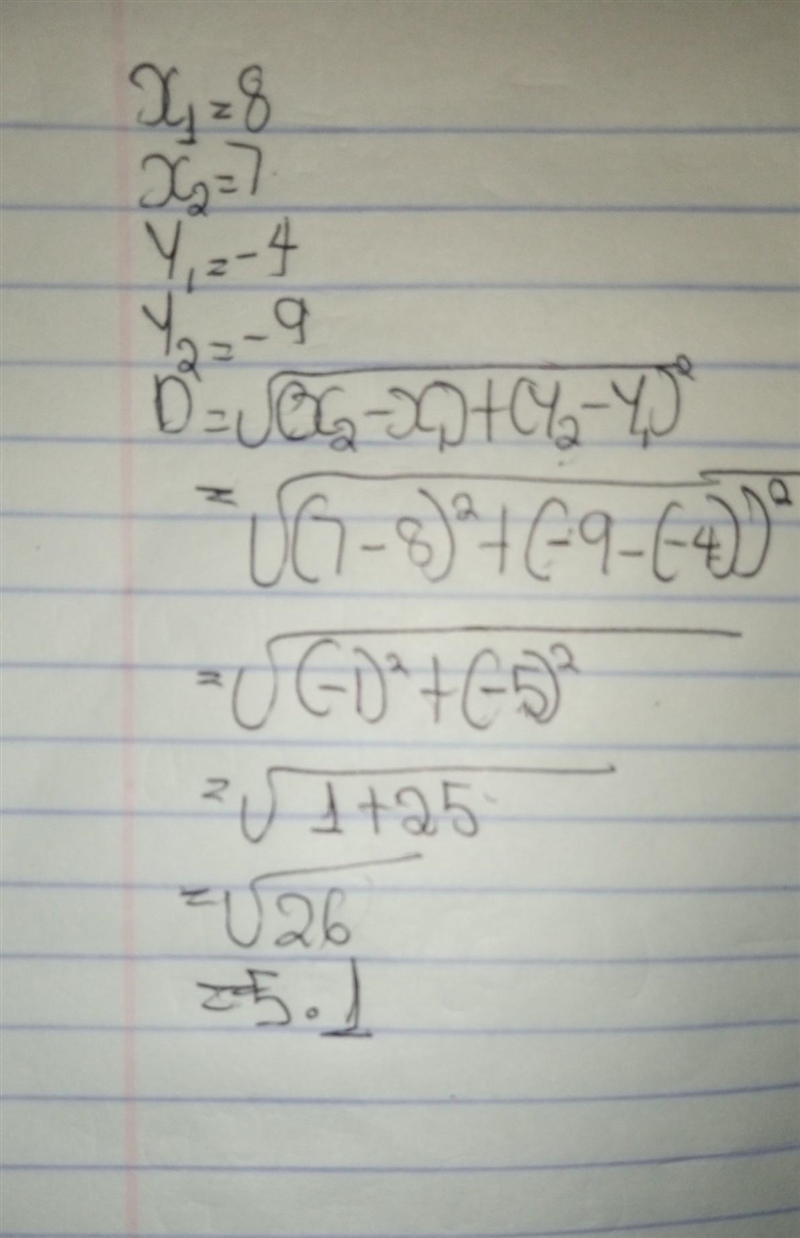 x₁=8
x₂=7
Y₁=-4
Y₂=-9
D=√(x₂-x₁)+(Y₂-Y₁)²
=√(7-8)²+(-9-(-4))²
=√(-1)²+(-5)²
=√1+25
=√26
=5.1